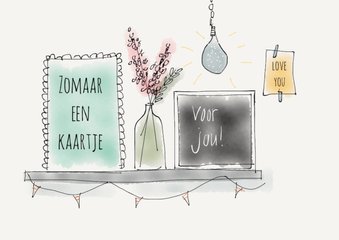 ZOMAAR
EEN
KAARTJE
Voor
jou!
LOVE
YOU